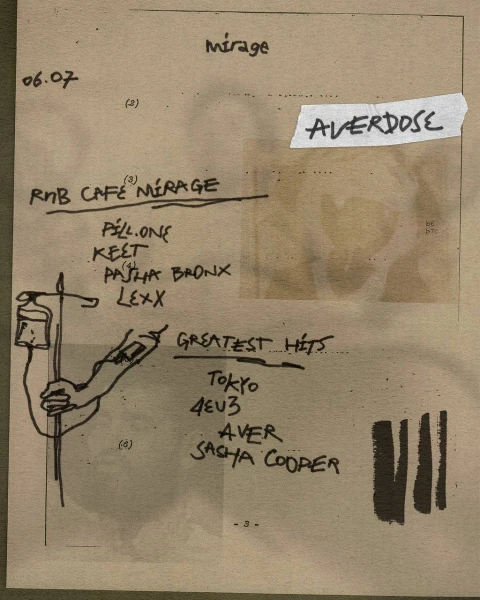 mirage
06.07
(2)
AVERDOSE
(3)
RnB CAFE MIRAGE
PILL.ONE
KEET
(4)
PASHA BRONX
LEXX
GREATEST HITS
TOKYO
4EU3
AVER
(6)
SASHA COOPER
- 3 -